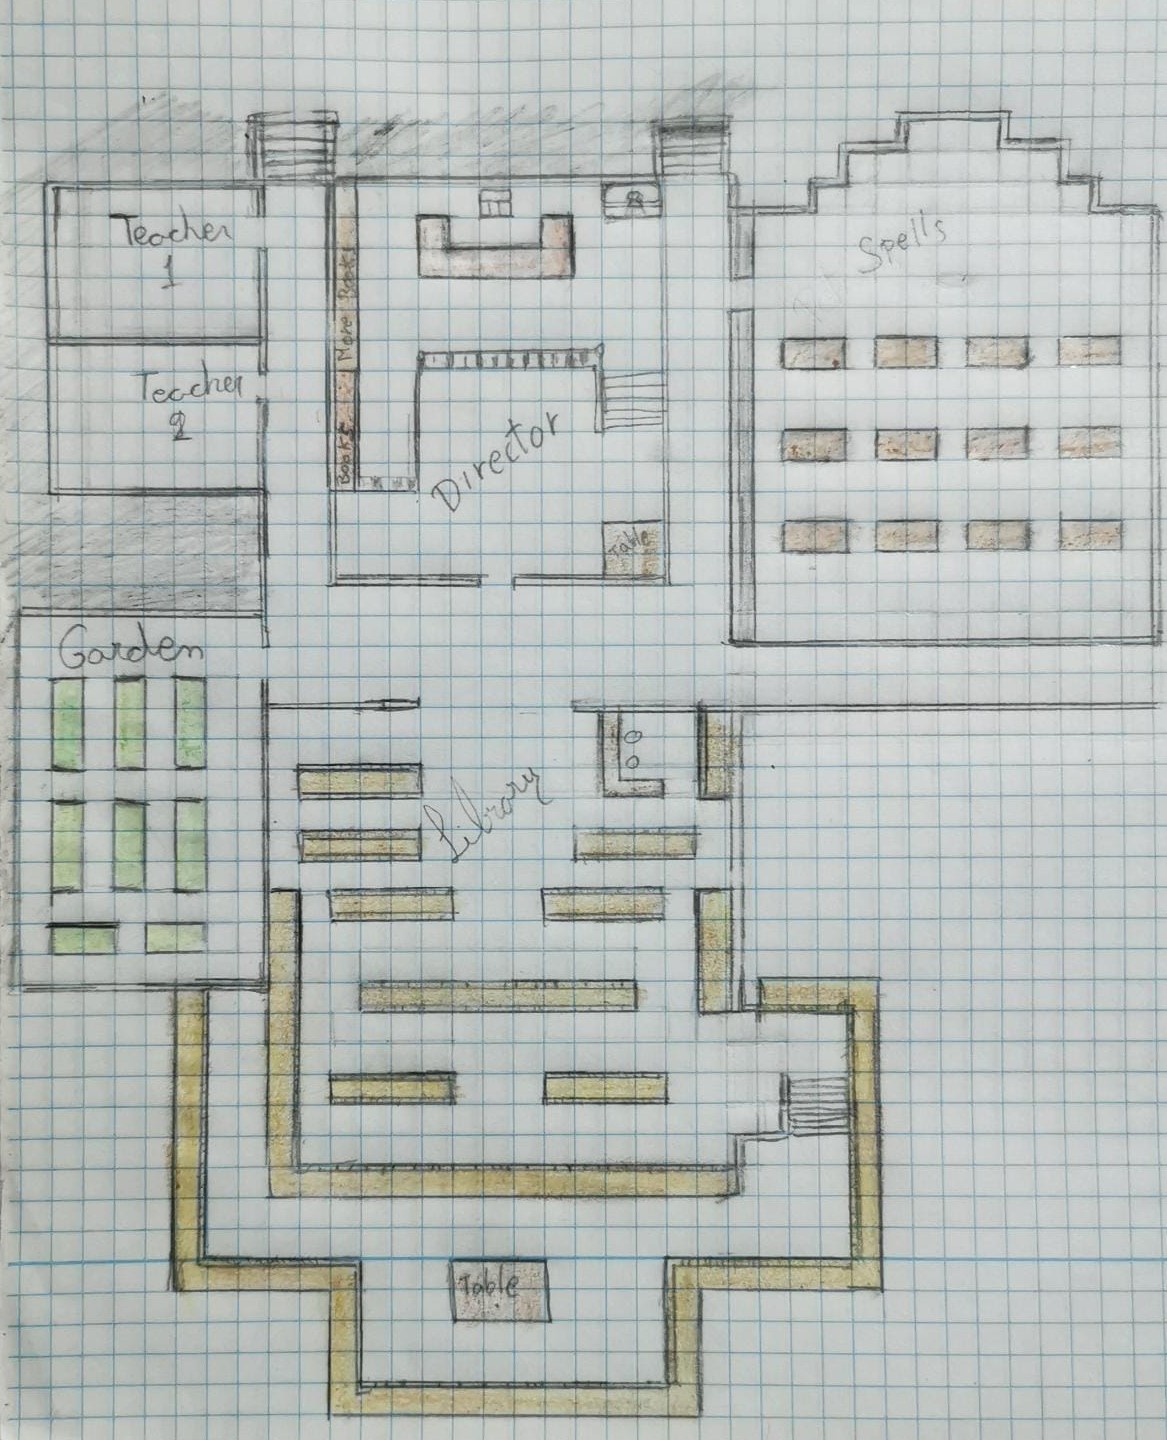 Teacher
1
Teacher
2
Spells
More Books
Books
Director
Table
Garden
Library
Table